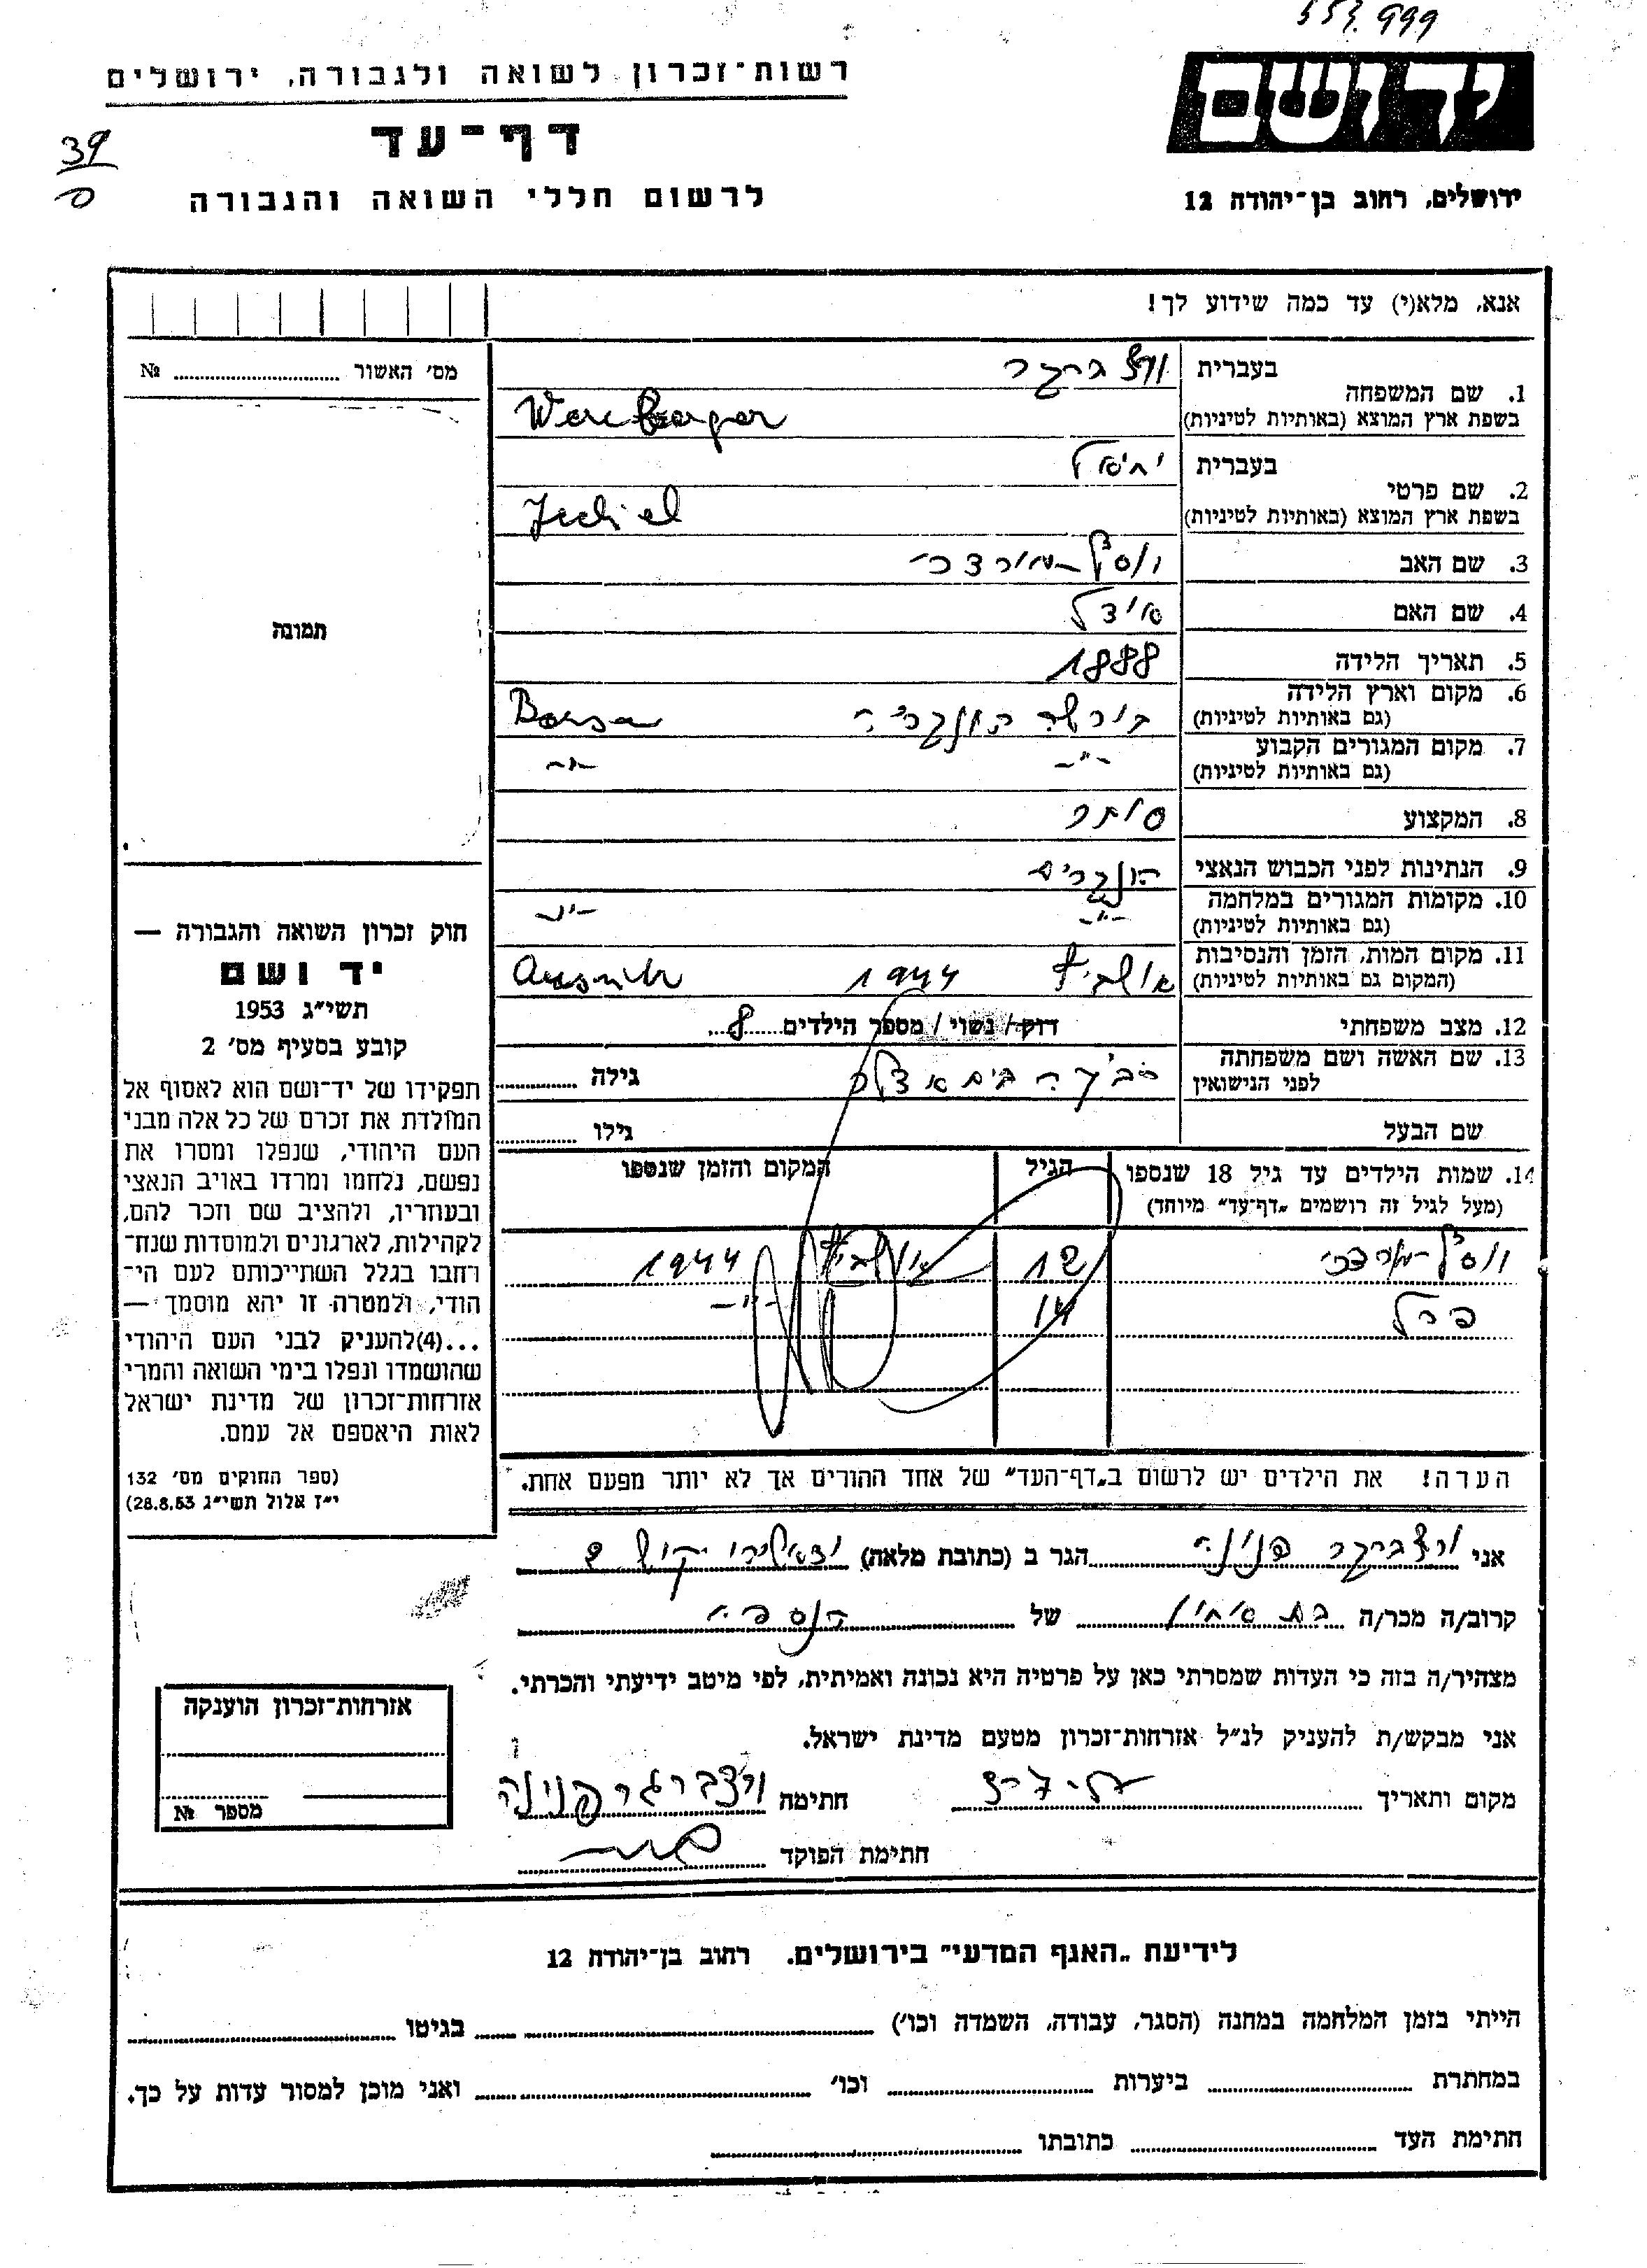 רשות־זכרון לשואה ולגבורה, ירושלים
דף־עד
לרשום חללי השואה והגבורה
39
יד ושם
ירושלים, רחוב בן־יהודה 12
אנא, מלא(י) עד כמה שידוע לך!
מס׳ האשור № 
תמונה
חוק זכרון השואה והגבורה —
יד ושם
תשי״ג 1953
קובע בסעיף מס׳ 2
תפקידו של יד־ושם הוא לאסוף אל
המולדת את זכרם של כל אלה מבני
העם היהודי, שנפלו ומסרו את
נפשם, נלחמו ומרדו באויב הנאצי
ובעוזריו, ולהציב שם וזכר להם,
לקהילות, לארגונים ולמוסדות שנח־
רחבו בגלל השתייכותם לעם הי־
הודי, ולמטרה זו יהא מוסמך —
...(4)להעניק לבני העם היהודי
שהושמדו ונפלו בימי השואה והמרי
אזרחות־זכרון של מדינת ישראל
לאות היאספם אל עמם.
(ספר החוקים מס׳ 132
י״ז אלול תשי״ג 28.8.53)
1. שם המשפחה
בעברית ורצברגר
בשפת ארץ המוצא (באותיות לטיניות)
2. שם פרטי
בעברית יחיאל
בשפת ארץ המוצא (באותיות לטיניות) Jechiel
3. שם האב מרדכי
4. שם האם אידל
5. תאריך הלידה 1888
6. מקום וארץ הלידה
(גם באותיות לטיניות) בורשה הונגריה Borsa
7. מקום המגורים הקבוע
(גם באותיות לטיניות) -"- -"-
8. המקצוע סוחר
9. הנתינות לפני הכבוש הנאצי
10. מקומות המגורים במלחמה
(גם באותיות לטיניות) -"- -"-
11. מקום המות, הזמן והנסיבות
(המקום גם באותיות לטיניות) אושביץ 1944
12. מצב משפחתי רוק/ נשוי/ מספר הילדים 8
13. שם האשה ושם משפחתה
לפני הנישואין גילה
שם הבעל גילו
14. שמות הילדים עד גיל 18 שנספו הגיל המקום והזמן שנספו
(מעל לגיל זה רושמים „דף־עד״ מיוחד)
מרדכי 12 אושביץ 1944
פרל 14 -"-
הערה! את הילדים יש לרשום ב„דף־העד״ של אחד ההורים אך לא יותר מפעם אחת.
אני ורצברגר פנינה הגר ב (כתובת מלאה)
קרוב/ה מכר/ה בת אחין של הנספה
מצהיר/ה בזה כי העדות שמסרתי כאן על פרטיה היא נכונה ואמיתית, לפי מיטב ידיעתי והכרתי.
אני מבקש/ת להעניק לנ״ל אזרחות־זכרון מטעם מדינת ישראל.
מקום ותאריך חתימה ורצברגר פנינה
חתימת הפוקד
אזרחות־זכרון הוענקה
מספר №
לידיעת „האגף המדעי״ בירושלים. רחוב בן־יהודה 12
הייתי בזמן המלחמה במחנה (הסגר, עבודה, השמדה וכו׳) בגיטו
במחתרת ביערות וכו׳ ואני מוכן למסור עדות על כך.
חתימת העד כתובתו